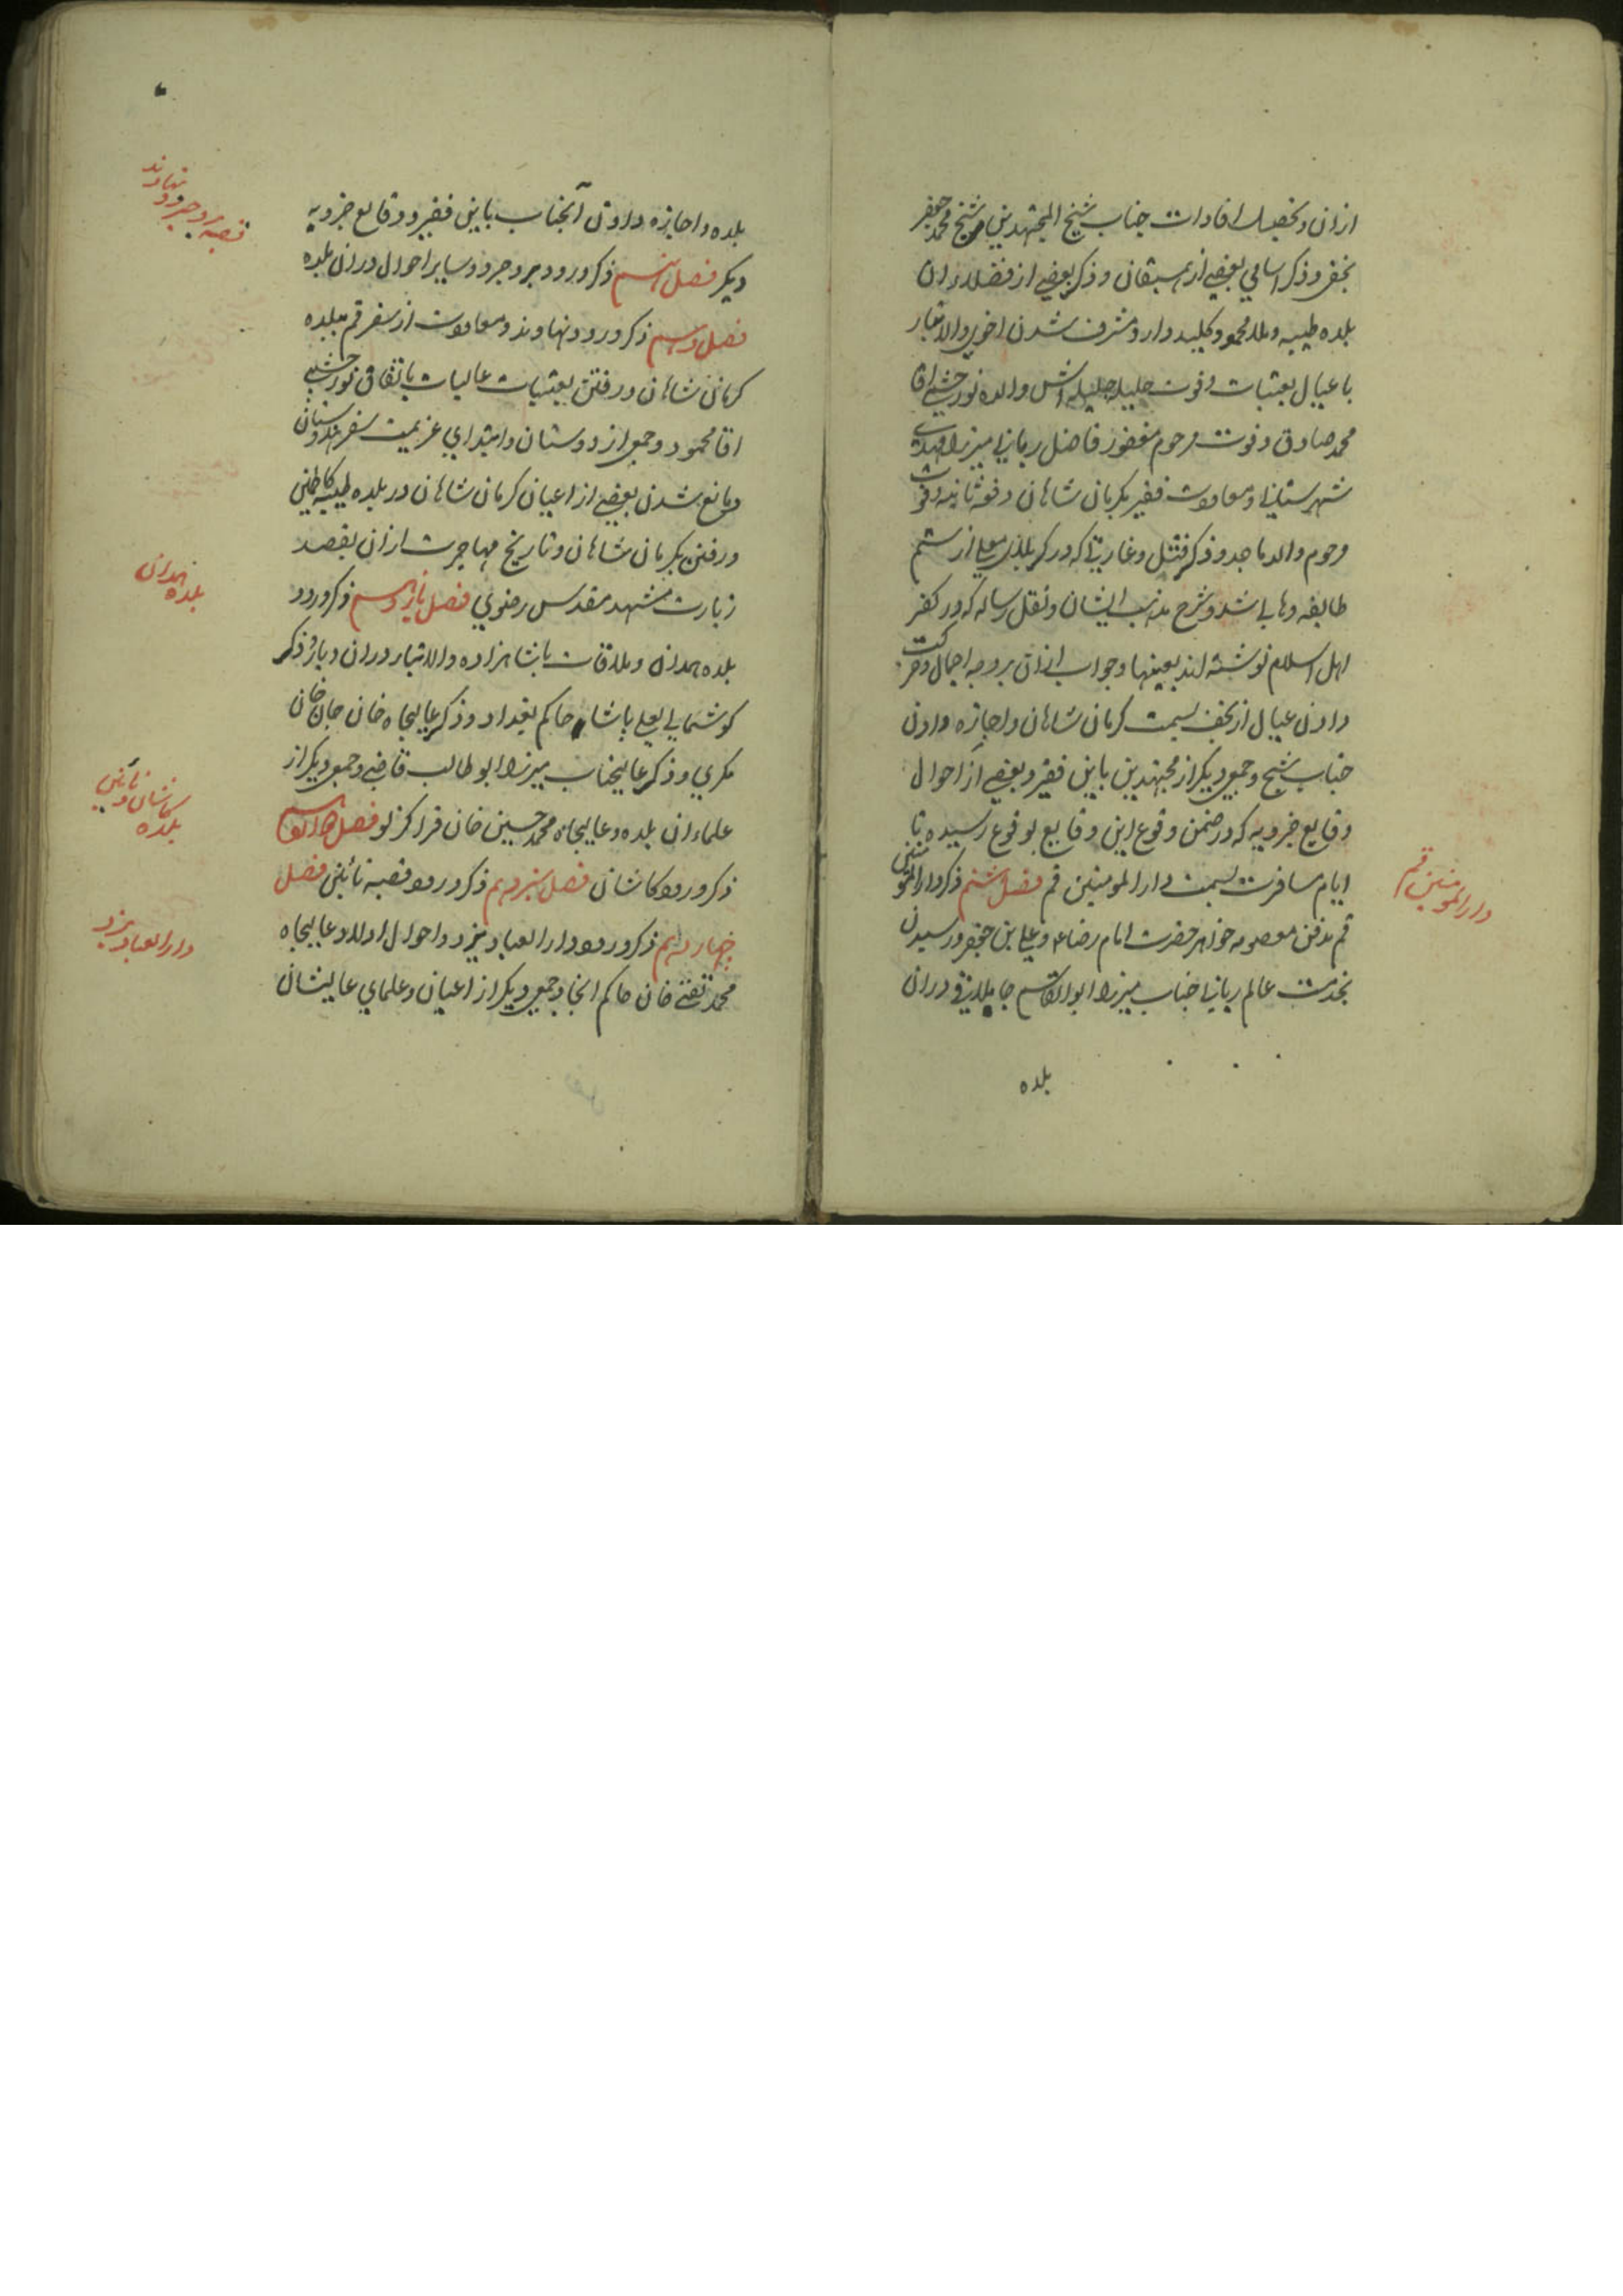 ازان و تحصیل افادات جناب شیخ المجتهدین شیخ محمد جعفر
نجفی و ذکر اسامی بعضی از همسبقان و ذکر بعضی از فضلاء ان
بلده طیبه و ملا محمود کلید دار و مشرف شدن اخوی والاتبار
با عیال بعتبات و فوت حلیله جلیله اش والده نور چشمی اقا
محمد صادق و فوت مرحوم مغفور فاضل ربانی میرزا مهدی
شهرستانی و معاودت فقیر بکرمان شاهان دفعه ثانیه و فوت
مرحوم والد ماجد و ذکر قتل و غارتی که در کربلای معلی از ستم
طایفه وهابی شد و شرح مذهب ایشان و نقل رساله که در کفر
اهل اسلام نوشته اند بعینها و جواب ازان بر وجه اجمال و حرکت
دادن عیال از نجف بسمت کرمان شاهان و اجازه دادن
جناب شیخ و جمعی دیکر از مجتهدین باین فقیر و بعضی از احوال
وقایع جزویه که در ضمن وقوع این وقایع بوقوع رسیده تا
ایام مسافرت بسمت دار المومنین قم فصل هشتم ذکر دار المومنین
قم مدفن معصومه خواهر حضرت امام رضاء و علی بن جعفر و رسیدن
بخدمت عالم ربانی جناب میرزا ابوالقاسم جاپلاقی دران
بلده
دار المومنین قم
بلده و اجازه دادن آنجناب باین فقیر و وقایع جزویه
دیکر فصل نهم ذکر ورود بروجرد و سایر احوال دران بلده
فصل دهم ذکر ورود نهاوند و معاودت از سفر قم ببلده
کرمان شاهان و رفتن بعتبات عالیات باتفاق نور چشمی
اقا محمود و جمعی از دوستان و ابتدای عزیمت سفر هندوستان
و مانع شدن بعضی از اعیان کرمان شاهان در بلده طیبه کاظمین
و رفتن بکرمان شاهان و تاریخ مهاجرت ازان بقصد
زیارت مشهد مقدس رضوی فصل یازدهم ذکر ورود
بلده همدان و ملاقات با شاهزاده والاتبار دران دیار و ذکر
کوشمالی علی پاشا حاکم بغداد و ذکر عالیجاه خان جان خان
مکری و ذکر عالیجناب میرزا ابو طالب قاضی و جمعی دیکر از
علماء ان بلده و عالیجاه محمد حسین خان قراکزلو فصل دوازدهم
ذکر ورود کاشان فصل سیزدهم ذکر ورود قصبه نائین فصل
چهاردهم ذکر ورود دار العباد یزد و احوال اولاد عالیجاه
محمد تقی خان حاکم انجا و جمعی دیکر از اعیان و علمای عالیشان
قصبه بروجرد و نهاوند
بلده همدان
بلده کاشان و نائین
دار العباد یزد